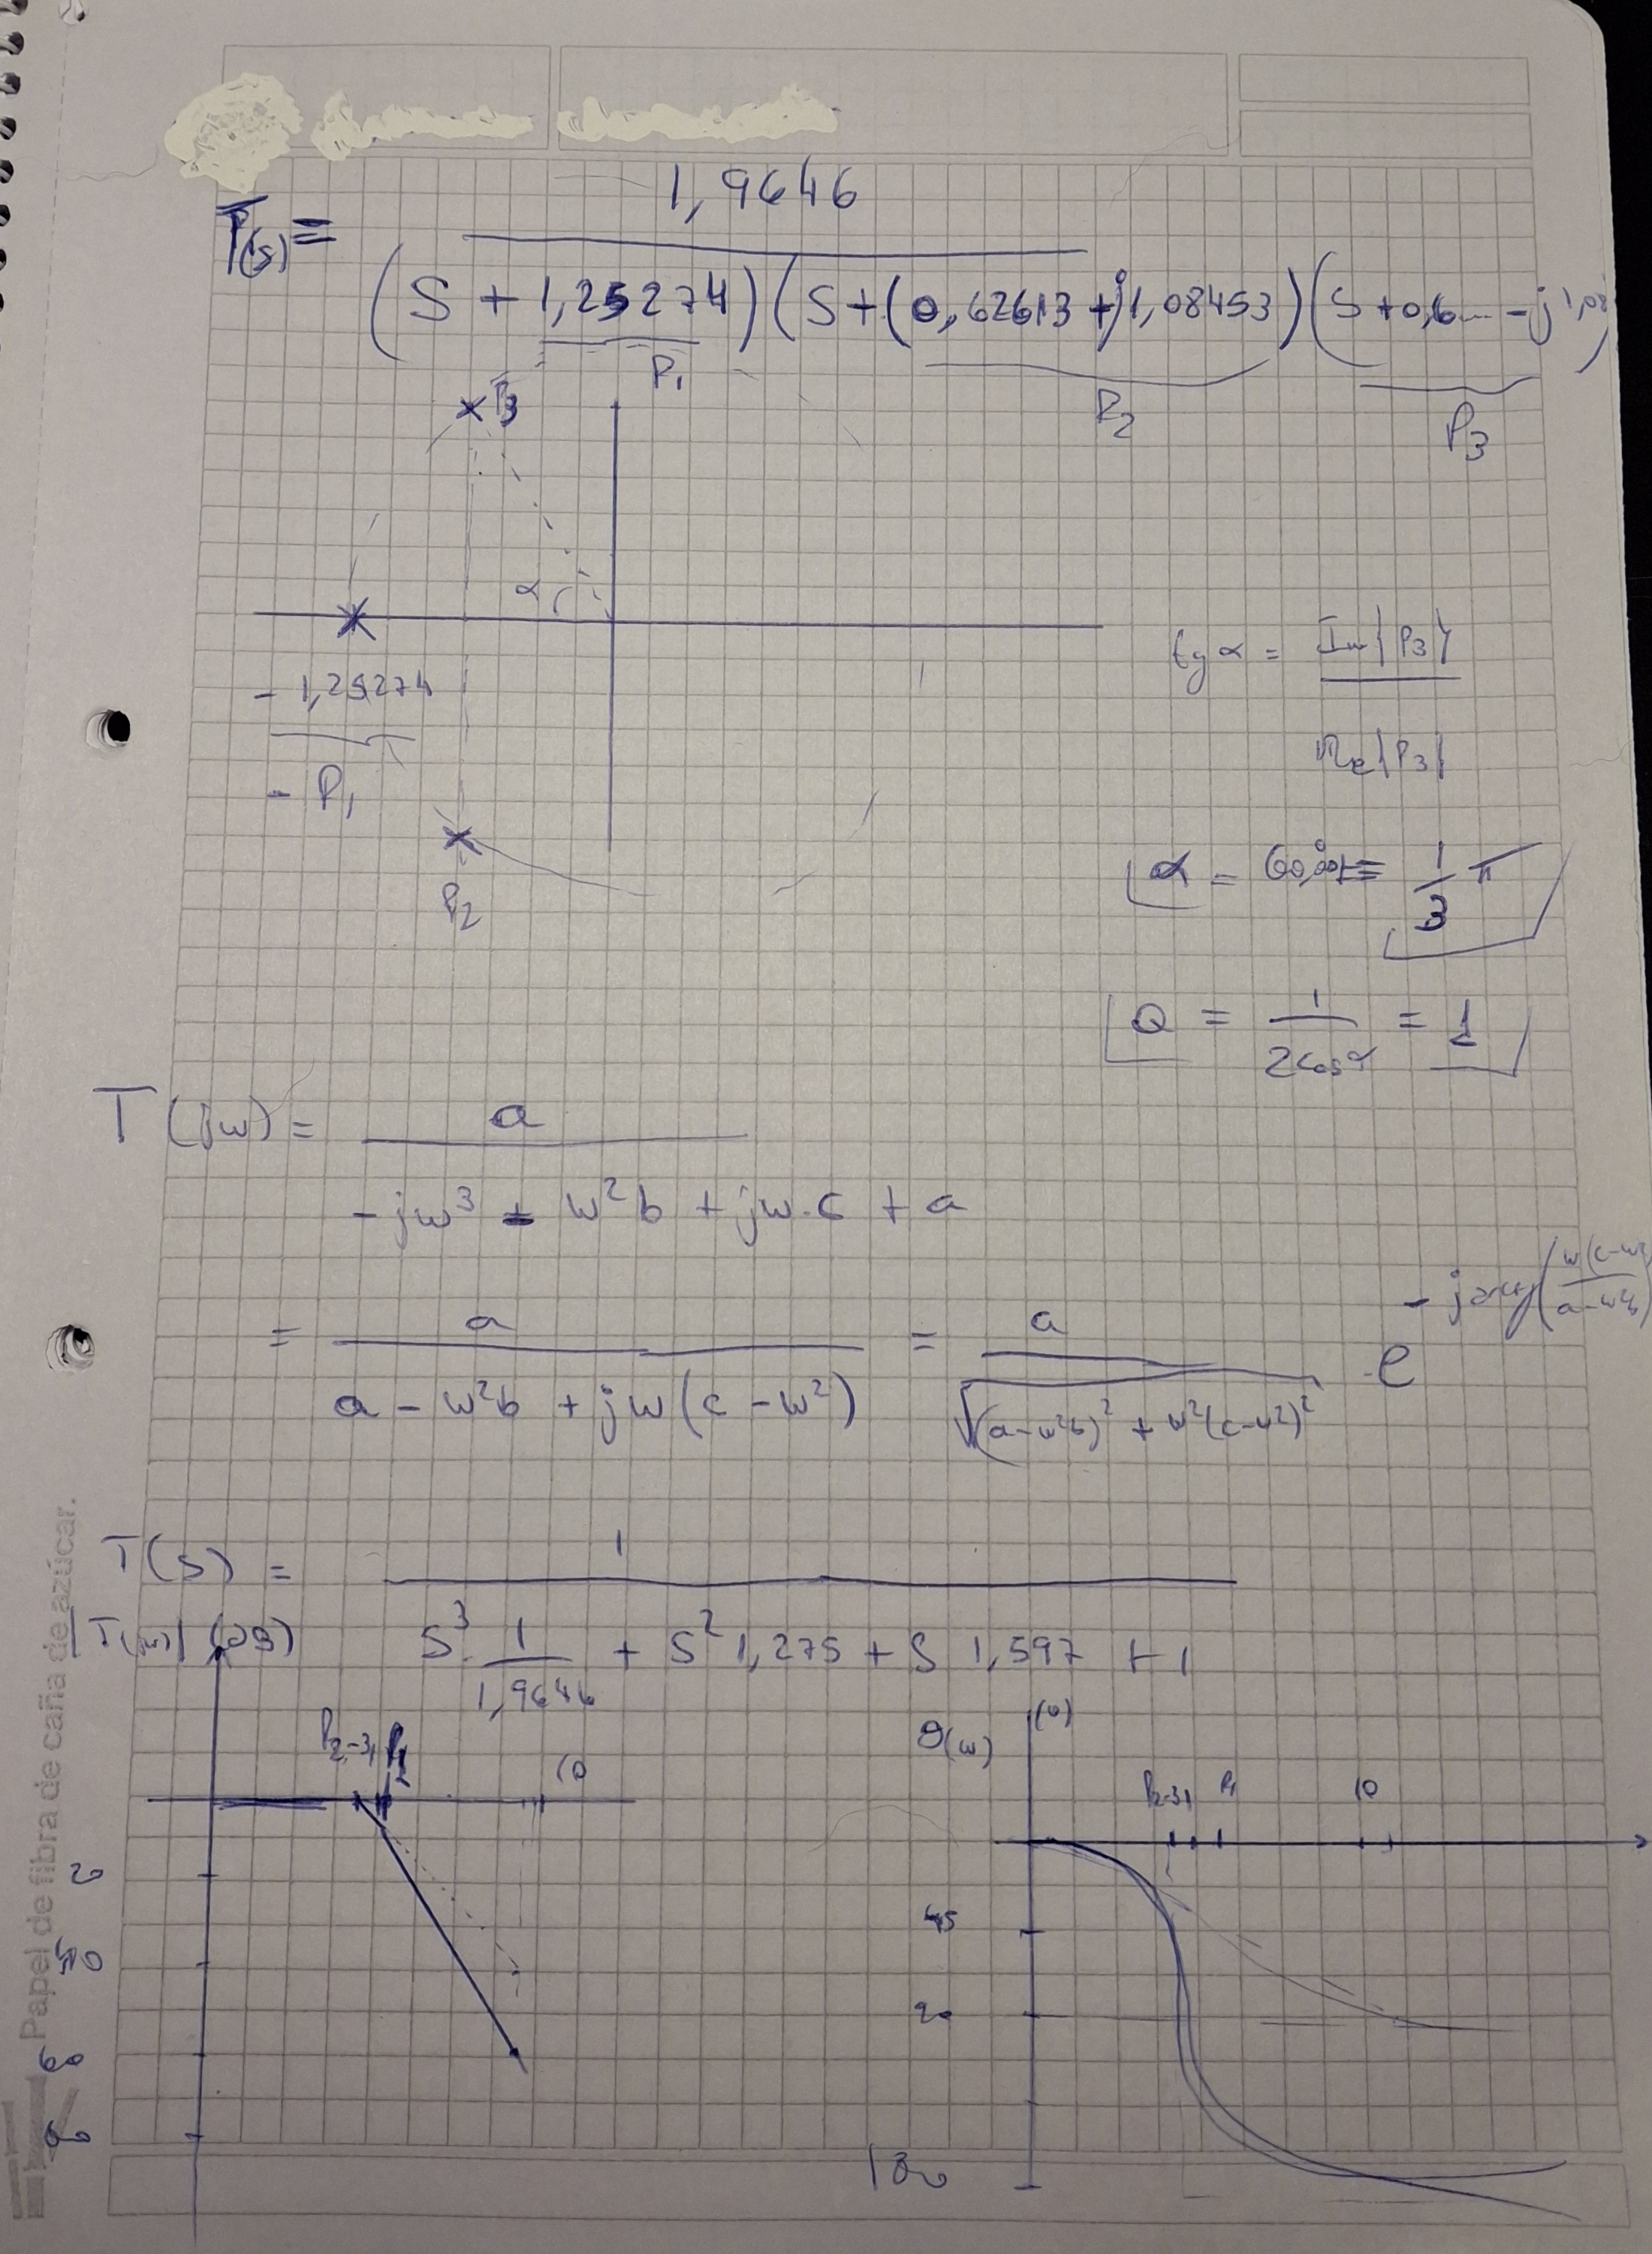 T(s) = 1,9646 / (S + 1,25274)(S + (0,62613 + j1,08453)(S + 0,6... - j 1,08)
P1 P2 P3
P3
α
- 1,25274
- P1
P2
tg α = Im{P3} / Re{P3}
α = = 1/3 π
Q = 1 / 2cosα = 1
T(jω) = a / -jω³ - ω²b + jω·c + a
= a / a - ω²b + jω(c - ω²) = a / √(a-ω²b)² + ω²(c-ω²)² · e
T(s) = 1 / S³ · 1/1,9646 + S² 1,275 + S 1,597 + 1
|T(jω)| (dB)
P2-3, P1 10
20
40
60
θ(ω) (º)
P2-3, P1 10
45
90
180
Papel de fibra de caña de azúcar.